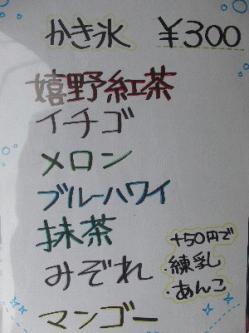 かき氷 ¥300
嬉野紅茶
イチゴ
メロン
ブルーハワイ
抹茶
みぞれ
マンゴー
+50円で
・練乳
・あんこ